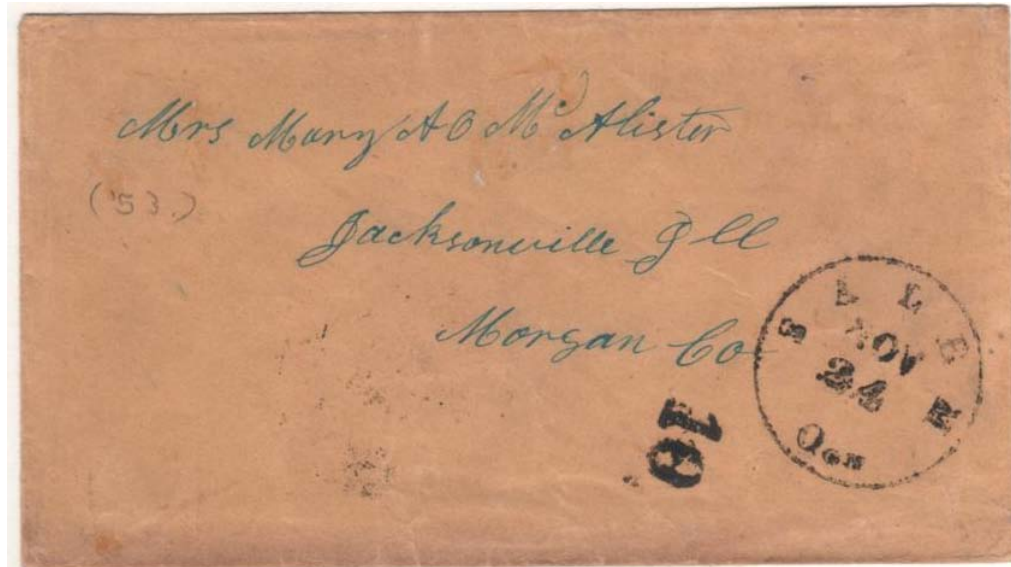 Mrs Mary A O McAlister
('53.)
Jacksonville Ill
Morgan Co
SALEM
NOV
24
10